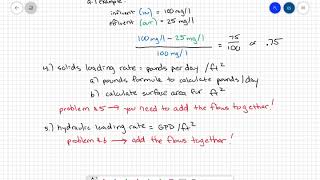 Example:
influent (in) = 100 mg/l
effluent (out) = 25 mg/l
100 mg/l - 25 mg/l
100 mg/l
= 75
100
or .75
4.) solids loading rate = pounds per day / ft²
a) pounds formula to calculate pounds/day
b) calculate surface area for ft²
problem #5 → you need to add the flows together!
5.) hydraulic loading rate = GPD / ft²
problem #6 → add the flows together!